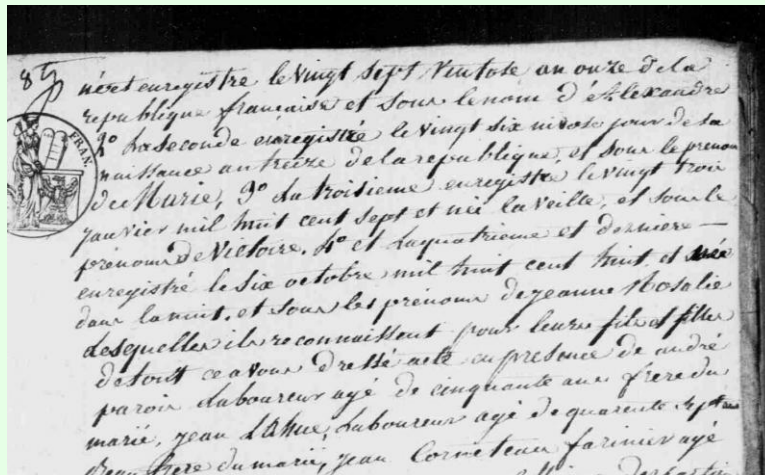 8
FRAN.
né et enregistré le vingt sept Ventose an onze de la
republique française et sous le nom d'Alexandre
2º La seconde enregistrée le vingt six nivose jour de sa
naissance an treize de la republique, et sous le prenom
de Marie, 3º La troisieme enregistré le vingt trois
janvier mil huit cent sept et née la veille, et sous le
prénom de Victoire. 4º et La quatrieme et derniere —
enregistré le six octobre mil huit cent huit, et née
dans la nuit, et sous les prénoms de jeanne Rosalie
Lesquelles ils reconnaissent pour leurs fils et filles
de tout ce avons dressé acte en presence de andré
parois Laboureur agé de cinquante ans frere du
marié, jean Laboureur agé de quarente sept ans
Beau frere du marié, jean farinier agé